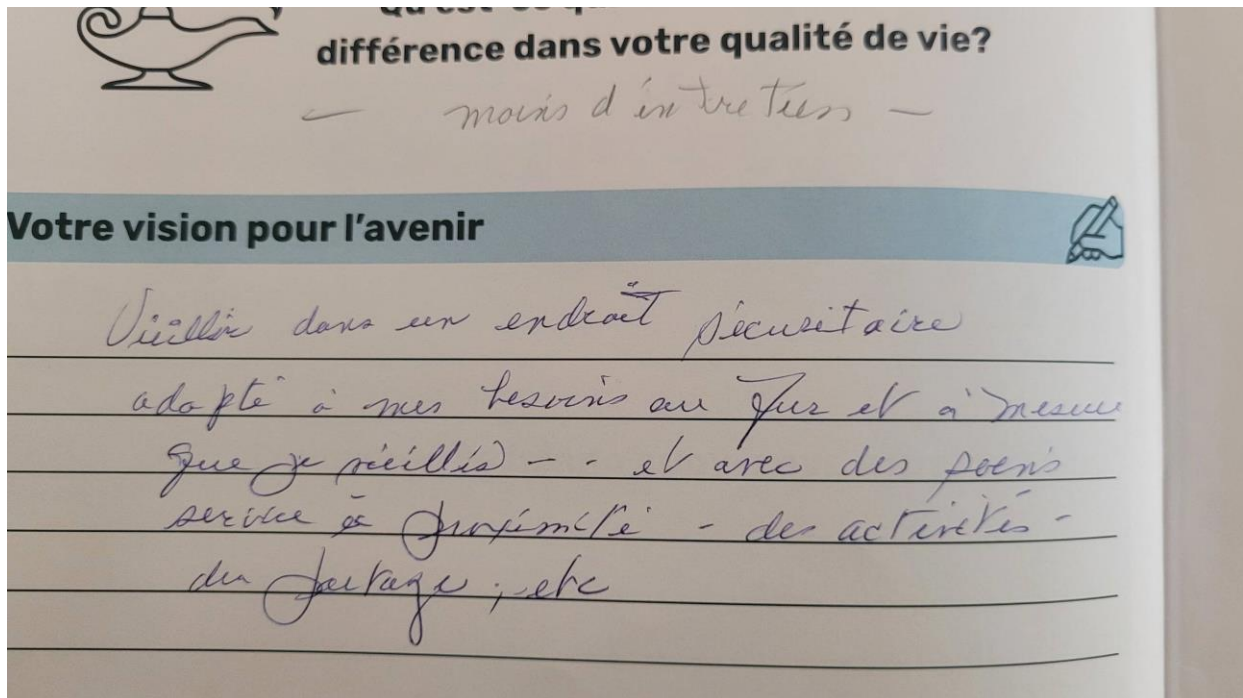 différence dans votre qualité de vie?
— moins d'entretien —
Votre vision pour l'avenir
Vieillir dans un endroit sécuritaire
adapté à mes besoins au fur et à mesure
que je vieillis - - et avec des soins
service à proximité - des activités -
du partage, etc